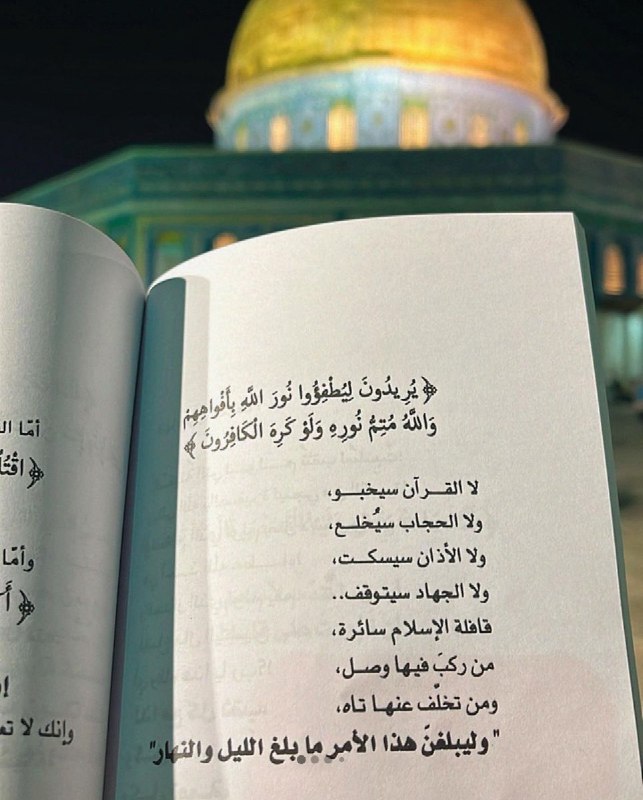 ﴿ يُرِيدُونَ لِيُطْفِؤُوا نُورَ اللَّهِ بِأَفْوَاهِهِمْ
وَاللَّهُ مُتِمُّ نُورِهِ وَلَوْ كَرِهَ الْكَافِرُونَ ﴾
لا القـرآن سيخبـو،
ولا الحجاب سيُخلـع،
ولا الأذان سيسكـت،
ولا الجهاد سيتوقف..
قافلة الإسلام سائرة،
من ركبَ فيها وصل،
ومن تخلّف عنها تاه،
" وليبلغنّ هذا الأمر ما بلغ الليل والنهار"
أمّا
وأمّا
وإنك لا